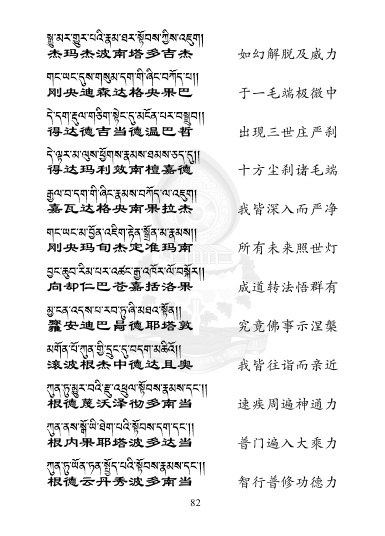 སྒྱུ་མར་གྱུར་པའི་རྣམ་ཐར་སྟོབས་ཀྱིས་འཇུག།
杰玛杰波南塔多吉杰 如幻解脱及威力
གང་ཡང་དུས་གསུམ་དག་གི་ཞིང་བཀོད་པ།།
刚央迪森达格央果巴 于一毛端极微中
དེ་དག་རྡུལ་གཅིག་སྟེང་དུ་མངོན་པར་བསྒྲུབ།།
得达德吉当德温巴哲 出现三世庄严刹
དེ་ལྟར་མ་ལུས་ཕྱོགས་རྣམས་ཐམས་ཅད་དུ།།
得达玛利效南檀嘉德 十方尘刹诸毛端
རྒྱལ་བ་དག་གི་ཞིང་རྣམས་བཀོད་ལ་འཇུག།
嘉瓦达格央南果拉杰 我皆深入而严净
གང་ཡང་མ་བྱོན་འཇིག་རྟེན་སྒྲོན་མ་རྣམས།།
刚央玛旬杰定准玛南 所有未来照世灯
བྱང་ཆུབ་རིམ་པར་འཚང་རྒྱ་འཁོར་ལོ་བསྐོར།།
向却仁巴苍嘉括洛果 成道转法悟群有
མྱ་ངན་འདས་པ་རབ་ཏུ་ཞི་མཐའ་སྟོན།།
安迪巴局德耶塔敦 究竟佛事示涅槃
མགོན་པོ་ཀུན་གྱི་དྲུང་དུ་བདག་མཆིའོ།།
滚波根杰中德达且奥 我皆往诣而亲近
ཀུན་ཏུ་མྱུར་བའི་རྫུ་འཕྲུལ་སྟོབས་རྣམས་དང་།།
根德蔑沃泽彻多南当 速疾周遍神通力
ཀུན་ནས་སྒོ་ཡི་ཐེག་པའི་སྟོབས་དག་དང་།།
根内果耶塔波多达当 普门遍入大乘力
ཀུན་ཏུ་ཡོན་ཏན་སྤྱོད་པའི་སྟོབས་རྣམས་དང་།།
根德云丹秀波多南当 智行普修功德力
82